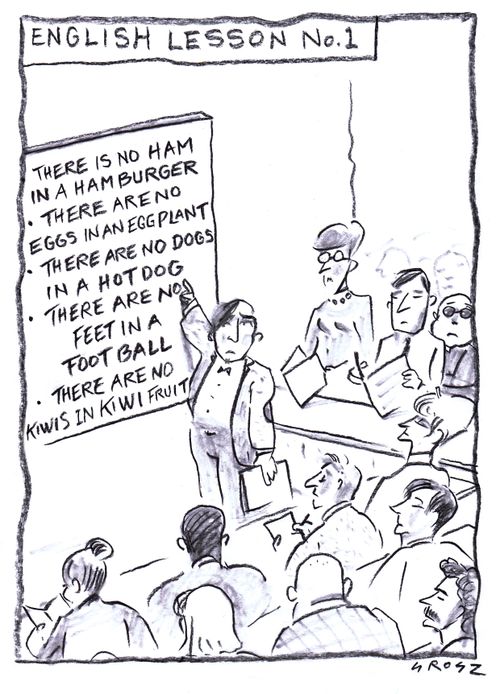 ENGLISH LESSON No.1
THERE IS NO HAM
IN A HAMBURGER
• THERE ARE NO
EGGS IN AN EGGPLANT
• THERE ARE NO DOGS
IN A HOT DOG
• THERE ARE NO
FEET IN A
FOOT BALL
• THERE ARE NO
KIWIS IN KIWI FRUIT
GROSZ